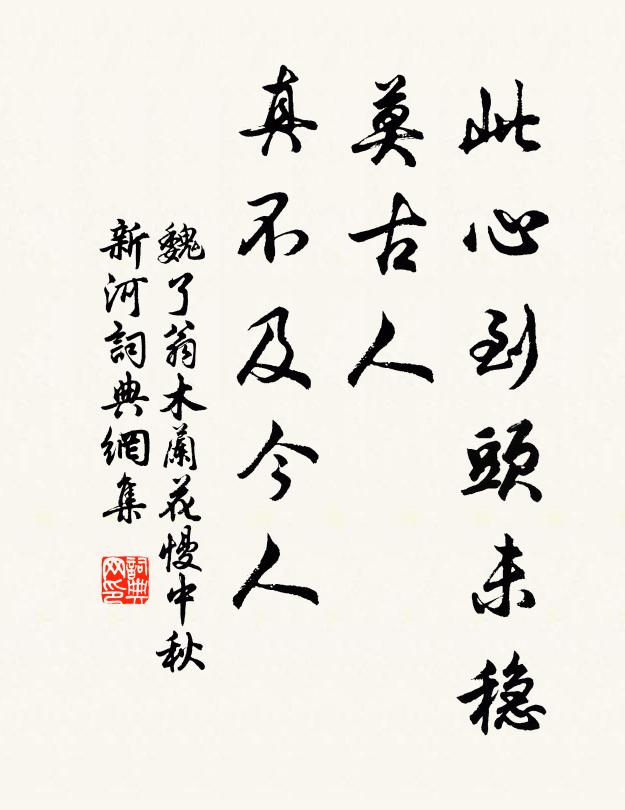 此心到頭未穩
莫古人
真不及今人
魏了翁木蘭花慢中秋
新河詞典網集
詞典
网印